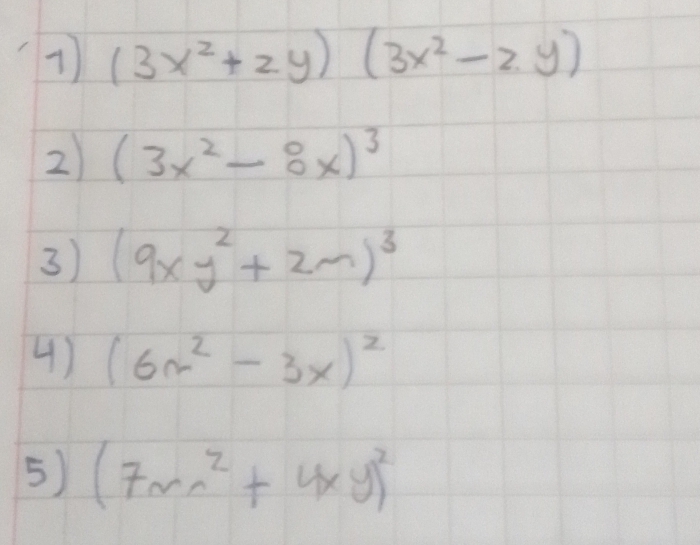 1) (3x² + 2y) (3x² - 2y)
2) (3x² - 8x)³
3) (9xy² + 2m)³
4) (6n² - 3x)²
5) (7mn² + 4xy)²